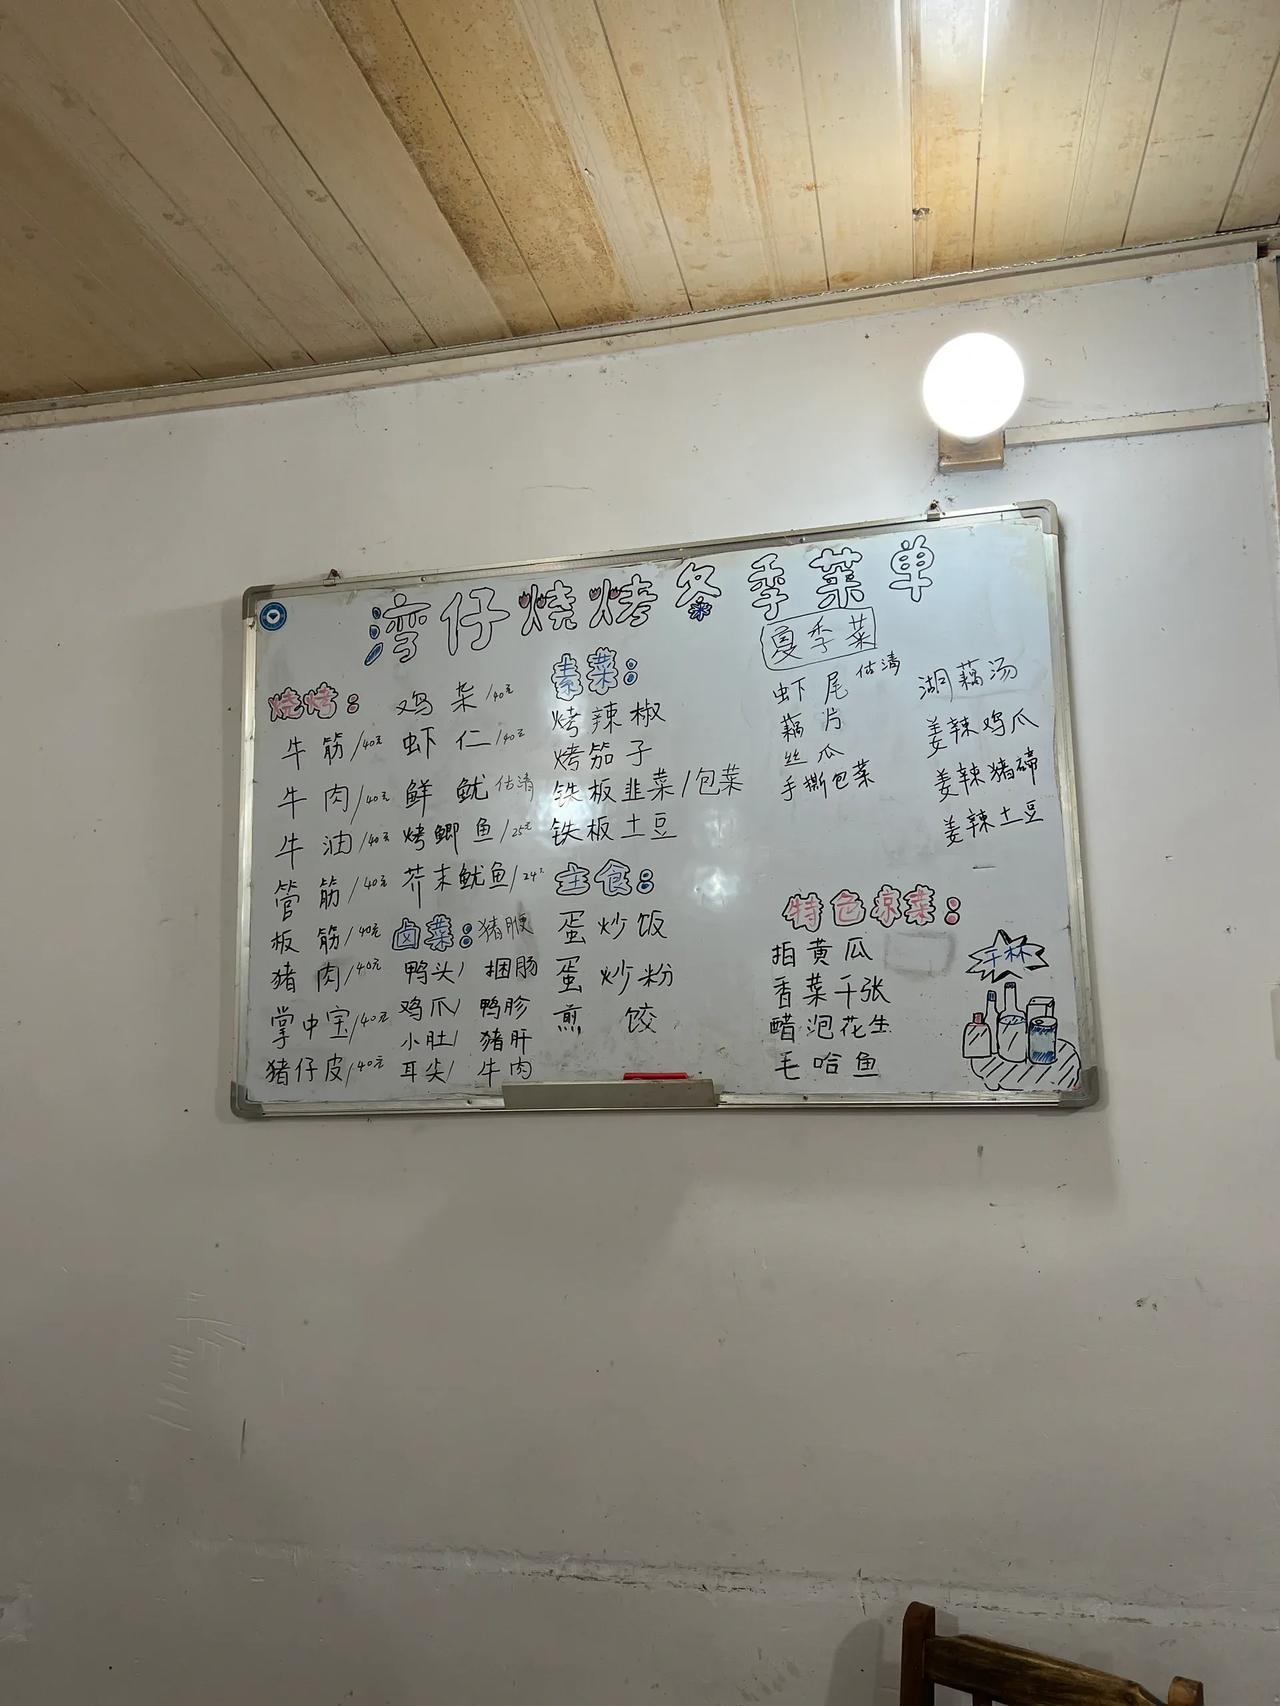 湾仔烧烤冬季菜单
烧烤：
牛筋/40元
牛肉/40元
牛油/40元
管筋/40元
板筋/40元
猪肉/40元
掌中宝/40元
猪仔皮/40元
鸡杂/40元
虾仁/40元
鲜鱿 估清
烤鲫鱼/25元
芥末鱿鱼/24元
卤菜：猪腰
鸭头/ 捆肠
鸡爪/ 鸭胗
小肚/ 猪肝
耳尖/ 牛肉
素菜：
烤辣椒
烤茄子
铁板韭菜/包菜
铁板土豆
主食：
蛋炒饭
蛋炒粉
煎饺
夏季菜
虾尾 估清
藕片
丝瓜
手撕包菜
湖藕汤
姜辣鸡爪
姜辣猪蹄
姜辣土豆
特色凉菜：
拍黄瓜
香菜千张
醋泡花生
毛哈鱼
干杯